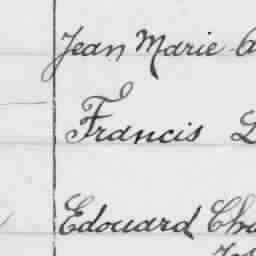 Jean Marie
Francis
Edouard